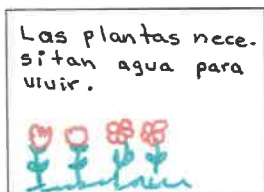 Las plantas nece-
sitan agua para
vivir.